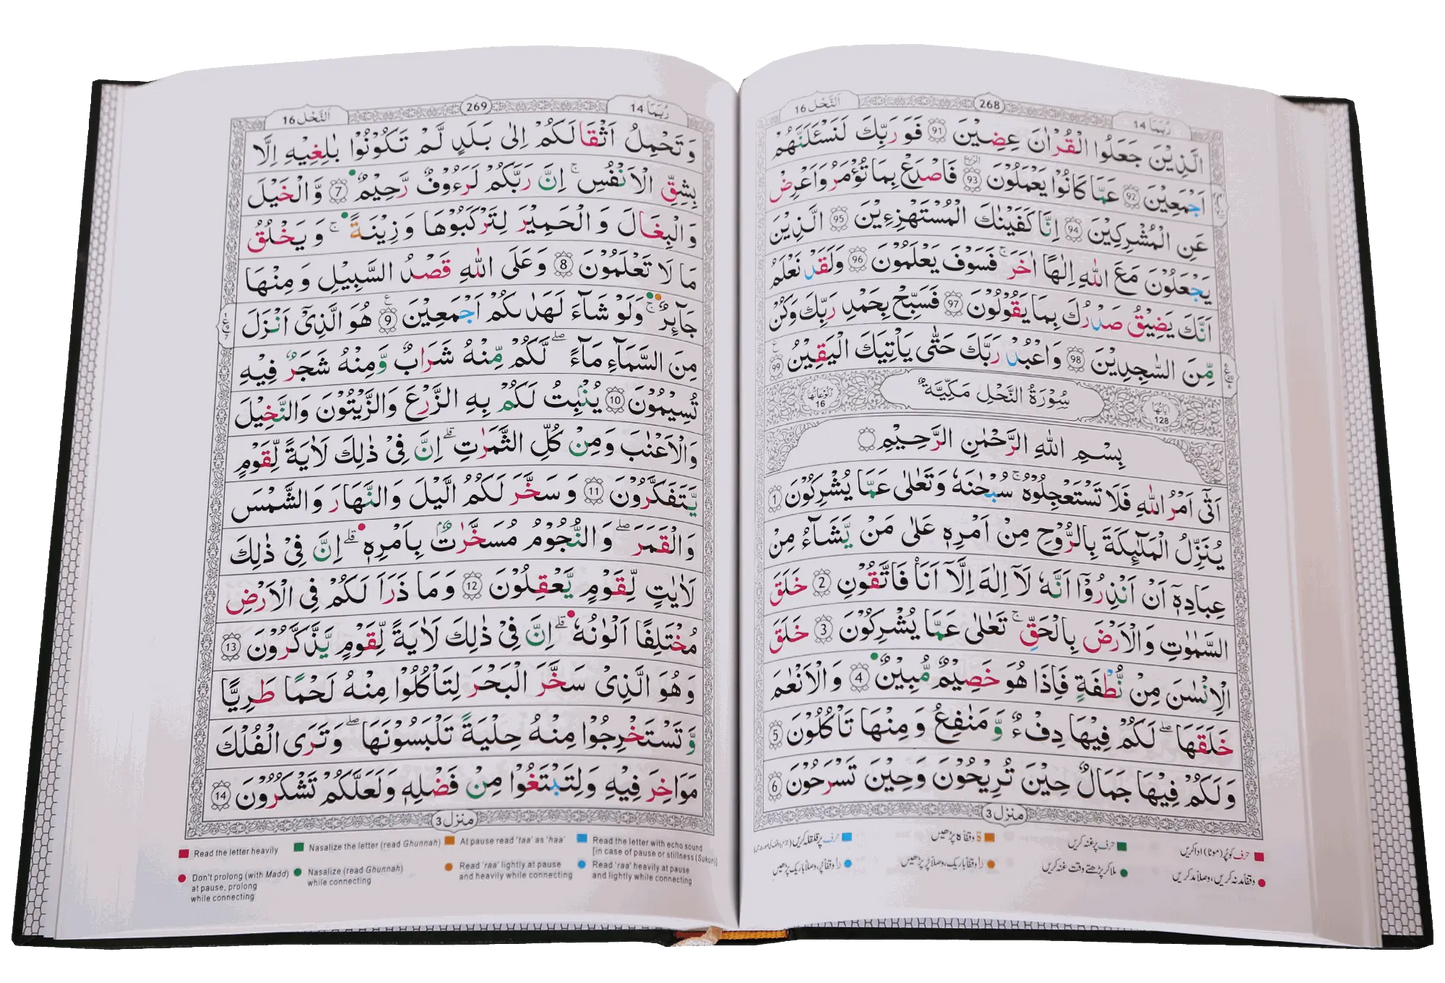 رُبَمَا 14
268
اَلنَّحْل 16
الَّذِيْنَ جَعَلُوا الْقُرْاٰنَ عِضِيْنَ 91 فَوَرَبِّكَ لَنَسْـَٔلَنَّهُمْ
اَجْمَعِيْنَ 92 عَمَّا كَانُوْا يَعْمَلُوْنَ 93 فَاصْدَعْ بِمَا تُؤْمَرُ وَاَعْرِضْ
عَنِ الْمُشْرِكِيْنَ 94 اِنَّا كَفَيْنٰكَ الْمُسْتَهْزِءِيْنَ 95 الَّذِيْنَ
يَجْعَلُوْنَ مَعَ اللّٰهِ اِلٰهًا اٰخَرَ ۚ فَسَوْفَ يَعْلَمُوْنَ 96 وَلَقَدْ نَعْلَمُ
اَنَّكَ يَضِيْقُ صَدْرُكَ بِمَا يَقُوْلُوْنَ 97 فَسَبِّحْ بِحَمْدِ رَبِّكَ وَكُنْ
مِّنَ السّٰجِدِيْنَ 98 وَاعْبُدْ رَبَّكَ حَتّٰى يَاْتِيَكَ الْيَقِيْنُ 99
اٰيَاتُهَا 128
سُوْرَةُ النَّحْلِ مَكِّيَّةٌ
رُكُوْعَاتُهَا 16
بِسْمِ اللّٰهِ الرَّحْمٰنِ الرَّحِيْمِ
اَتٰٓى اَمْرُ اللّٰهِ فَلَا تَسْتَعْجِلُوْهُ ۚ سُبْحٰنَهٗ وَتَعٰلٰى عَمَّا يُشْرِكُوْنَ 1
يُنَزِّلُ الْمَلٰٓئِكَةَ بِالرُّوْحِ مِنْ اَمْرِهٖ عَلٰى مَنْ يَّشَآءُ مِنْ
عِبَادِهٖٓ اَنْ اَنْذِرُوْٓا اَنَّهٗ لَآ اِلٰهَ اِلَّآ اَنَا فَاتَّقُوْنِ 2 خَلَقَ
السَّمٰوٰتِ وَالْاَرْضَ بِالْحَقِّ ۚ تَعٰلٰى عَمَّا يُشْرِكُوْنَ 3 خَلَقَ
الْاِنْسَانَ مِنْ نُّطْفَةٍ فَاِذَا هُوَ خَصِيْمٌ مُّبِيْنٌ 4 وَالْاَنْعَامَ
خَلَقَهَا ۖ لَكُمْ فِيْهَا دِفْءٌ وَّمَنَافِعُ وَمِنْهَا تَاْكُلُوْنَ 5
وَلَكُمْ فِيْهَا جَمَالٌ حِيْنَ تُرِيْحُوْنَ وَحِيْنَ تَسْرَحُوْنَ 6
منزل 3
حرف کو پُر (موٹا) ادا کریں
حرف پر غنہ کریں
ۃ وقفاً ہ پڑھیں
وقفاً مد نہ کریں، وصلاً مد کریں
ملا کر پڑھتے وقت غنہ کریں
رُبَمَا 14
269
اَلنَّحْل 16
وَتَحْمِلُ اَثْقَالَكُمْ اِلٰى بَلَدٍ لَّمْ تَكُوْنُوْا بٰلِغِيْهِ اِلَّا
بِشِقِّ الْاَنْفُسِ ۚ اِنَّ رَبَّكُمْ لَرَءُوْفٌ رَّحِيْمٌ 7 وَّالْخَيْلَ
وَالْبِغَالَ وَالْحَمِيْرَ لِتَرْكَبُوْهَا وَزِيْنَةً ۚ وَيَخْلُقُ
مَا لَا تَعْلَمُوْنَ 8 وَعَلَى اللّٰهِ قَصْدُ السَّبِيْلِ وَمِنْهَا
جَآئِرٌ ۚ وَلَوْ شَآءَ لَهَدٰىكُمْ اَجْمَعِيْنَ 9 هُوَ الَّذِيْٓ اَنْزَلَ
مِنَ السَّمَآءِ مَآءً ۖ لَّكُمْ مِّنْهُ شَرَابٌ وَّمِنْهُ شَجَرٌ فِيْهِ
تُسِيْمُوْنَ 10 يُنْۢبِتُ لَكُمْ بِهِ الزَّرْعَ وَالزَّيْتُوْنَ وَالنَّخِيْلَ
وَالْاَعْنَابَ وَمِنْ كُلِّ الثَّمَرٰتِ ۗ اِنَّ فِيْ ذٰلِكَ لَاٰيَةً لِّقَوْمٍ
يَّتَفَكَّرُوْنَ 11 وَسَخَّرَ لَكُمُ الَّيْلَ وَالنَّهَارَ وَالشَّمْسَ
وَالْقَمَرَ ۖ وَالنُّجُوْمُ مُسَخَّرٰتٌۢ بِاَمْرِهٖ ۗ اِنَّ فِيْ ذٰلِكَ
لَاٰيٰتٍ لِّقَوْمٍ يَّعْقِلُوْنَ 12 وَمَا ذَرَاَ لَكُمْ فِي الْاَرْضِ
مُخْتَلِفًا اَلْوَانُهٗ ۗ اِنَّ فِيْ ذٰلِكَ لَاٰيَةً لِّقَوْمٍ يَّذَّكَّرُوْنَ 13
وَهُوَ الَّذِيْ سَخَّرَ الْبَحْرَ لِتَاْكُلُوْا مِنْهُ لَحْمًا طَرِيًّا
وَّتَسْتَخْرِجُوْا مِنْهُ حِلْيَةً تَلْبَسُوْنَهَا ۖ وَتَرَى الْفُلْكَ
مَوَاخِرَ فِيْهِ وَلِتَبْتَغُوْا مِنْ فَضْلِهٖ وَلَعَلَّكُمْ تَشْكُرُوْنَ 14
منزل 3
Read the letter heavily
Nasalize the letter (read Ghunnah)
At pause read 'taa' as 'haa'
Read the letter with echo sound
[in case of pause or stillness (Sukun)]
Don't prolong (with Madd)
at pause, prolong
while connecting
Nasalize (read Ghunnah)
while connecting
Read 'raa' lightly at pause
and heavily while connecting
Read 'raa' heavily at pause
and lightly while connecting